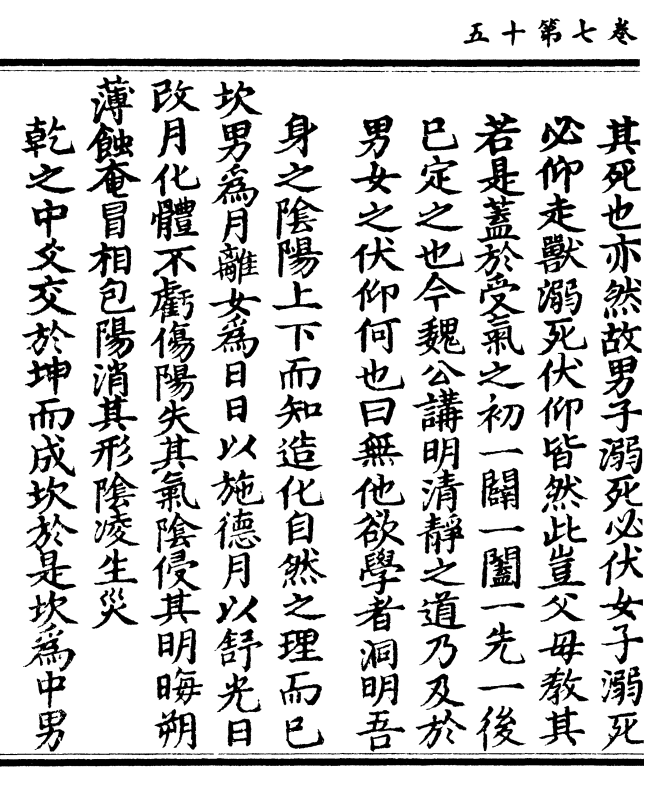 卷七第十五
其死也亦然故男子溺死必伏女子溺死
必仰走獸溺死伏仰皆然此豈父母教其
若是蓋於受氣之初一闢一闔一先一後
已定之也今魏公講明清靜之道乃及於
男女之伏仰何也曰無他欲學者洞明吾
身之陰陽上下而知造化自然之理而已
坎男爲月離女爲日日以施德月以舒光日
改月化體不虧傷陽失其氣陰侵其明晦朔
薄蝕奄冒相包陽消其形陰凌生災
乾之中爻交於坤而成坎於是坎爲中男